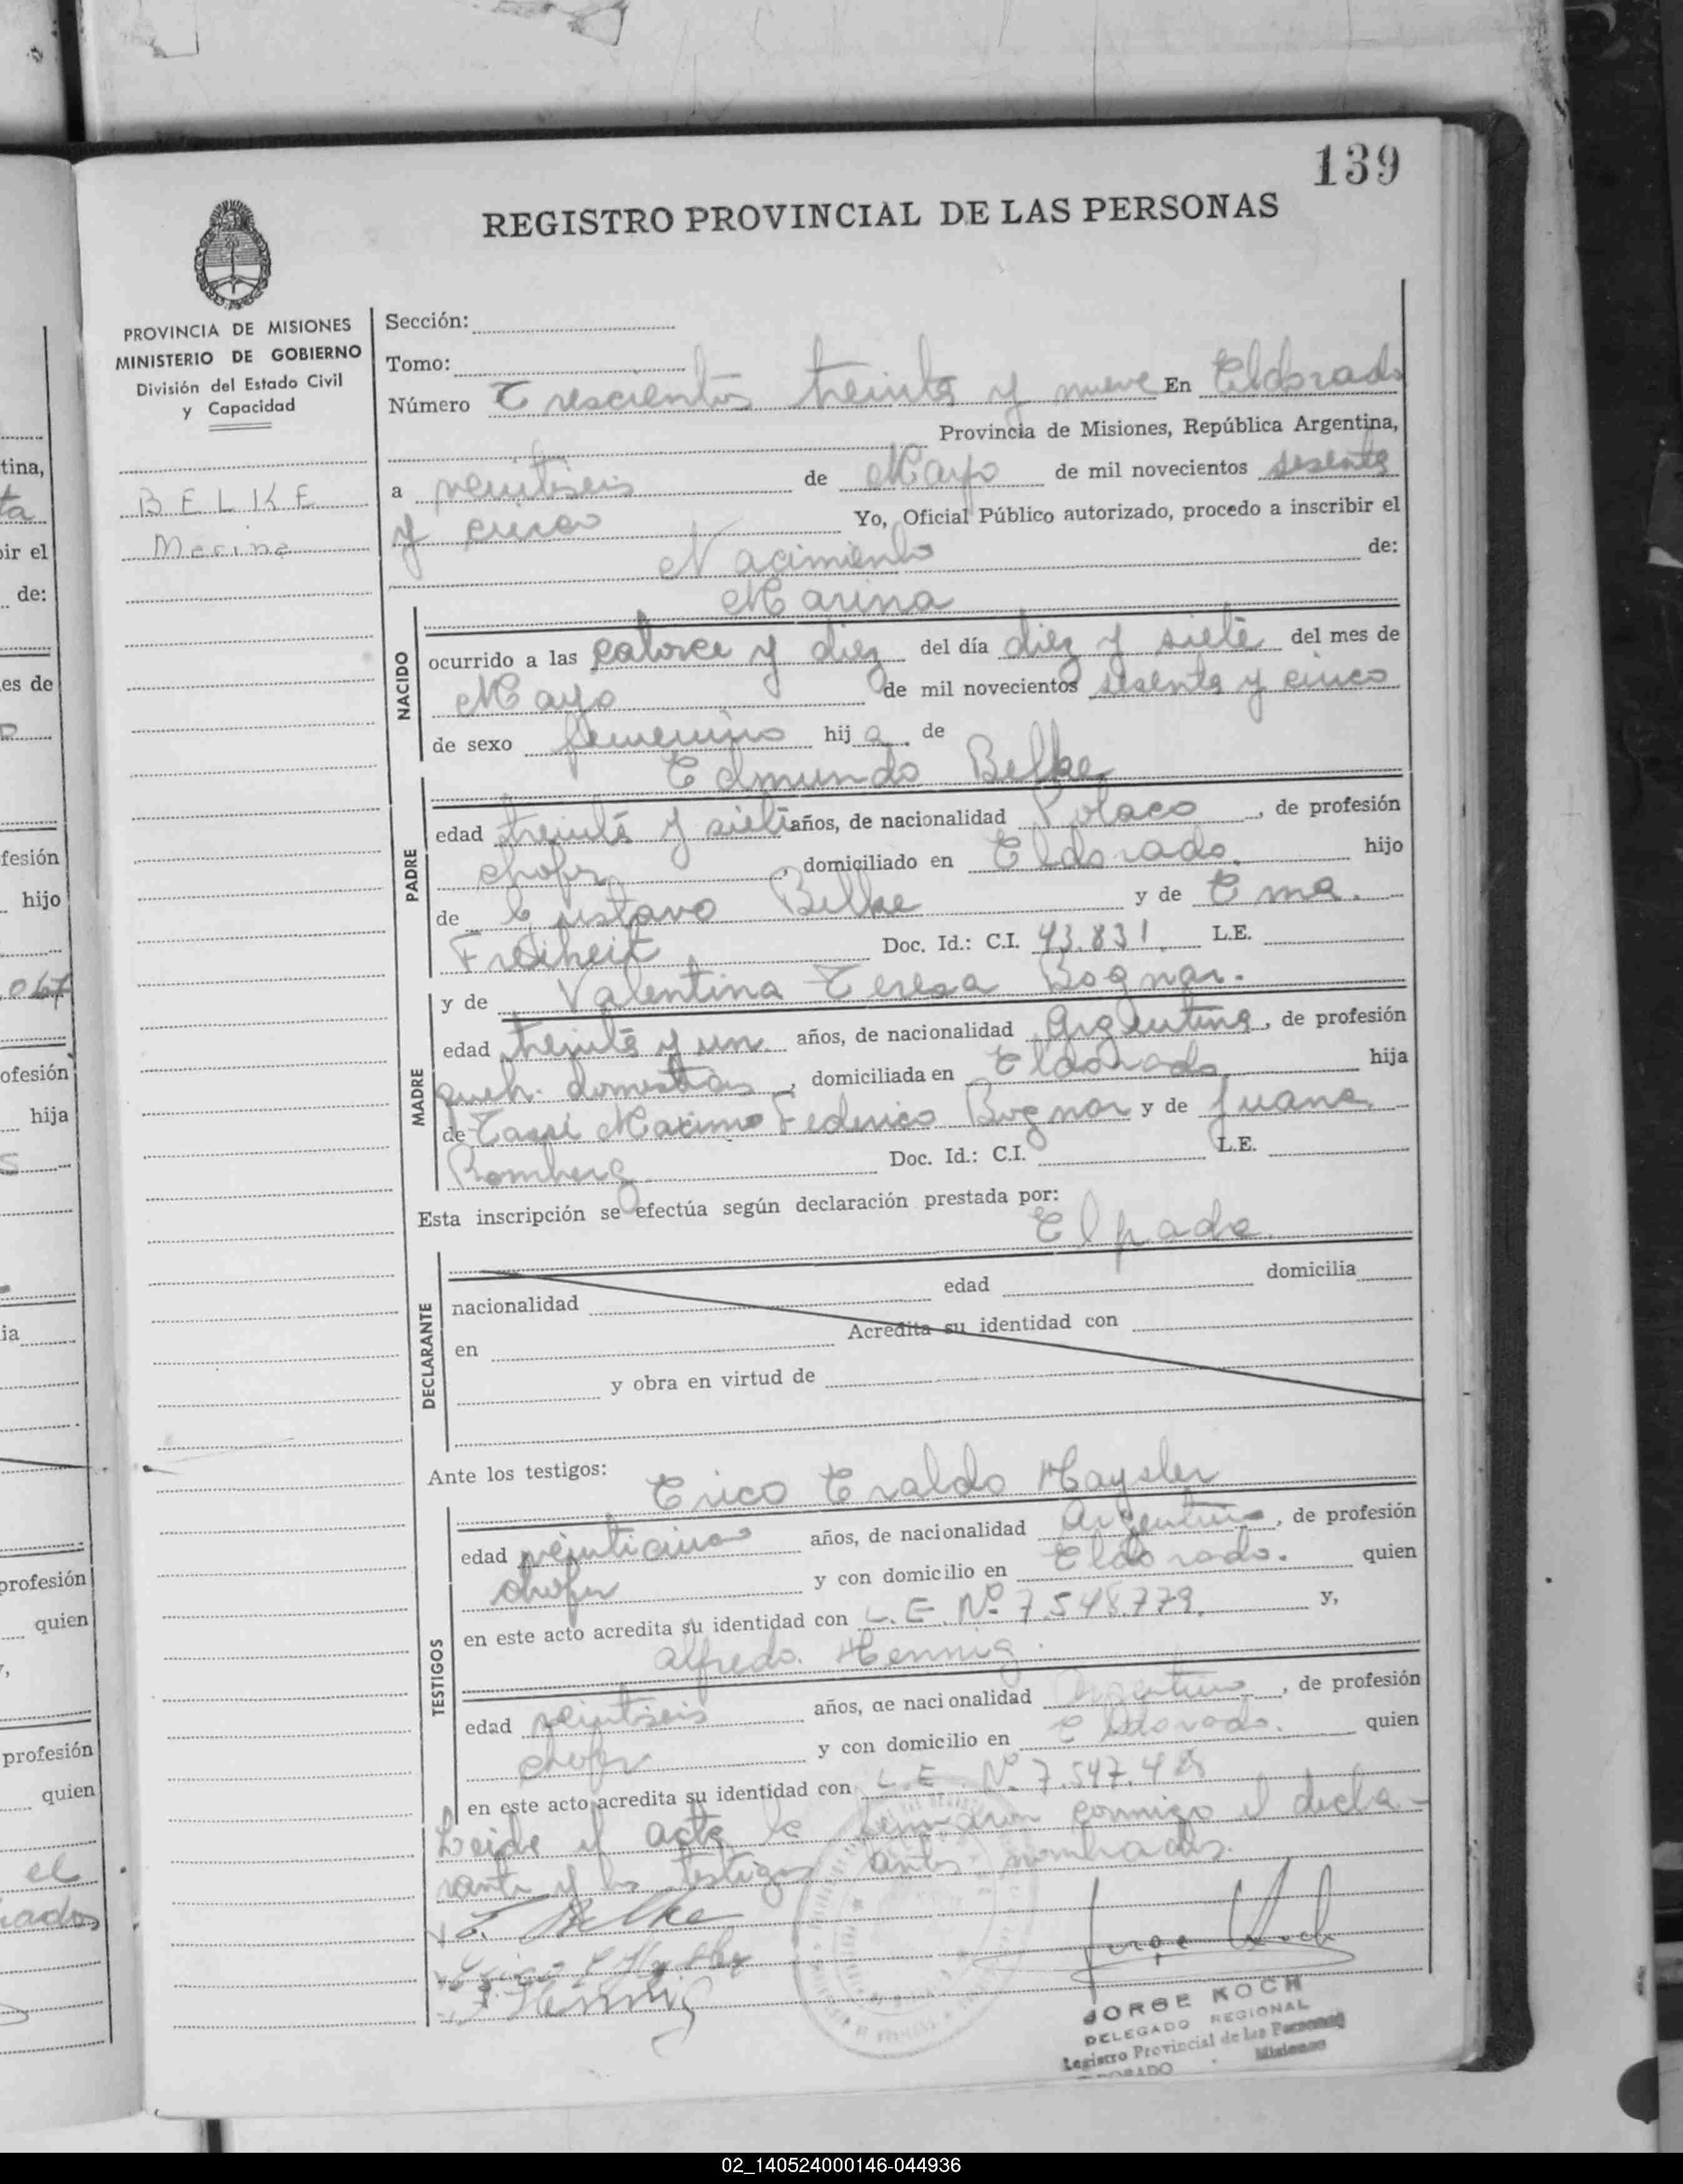 139
REGISTRO PROVINCIAL DE LAS PERSONAS
PROVINCIA DE MISIONES
MINISTERIO DE GOBIERNO
División del Estado Civil
y Capacidad
BELKE
Marina
Sección:
Tomo:
Número Trescientos treinta y nueve En Eldorado
Provincia de Misiones, República Argentina,
a veintiseis de Mayo de mil novecientos sesenta
y cinco Yo, Oficial Público autorizado, procedo a inscribir el
Nacimiento de:
Marina
NACIDO
ocurrido a las catorce y diez del día diez y siete del mes de
Mayo de mil novecientos sesenta y cinco
de sexo femenino hija de
Edmundo Belke
PADRE
edad treinta y siete años, de nacionalidad Polaco, de profesión
chofer, domiciliado en Eldorado. hijo
de Gustavo Belke y de Ema.
Freiheit Doc. Id.: C.I. 43.831. L.E.
MADRE
y de Valentina Teresa Bognar.
edad treinta y un años, de nacionalidad Argentina, de profesión
queh. domesticos, domiciliada en Eldorado hija
de Maximo Federico Bognar y de Juana
Romberg Doc. Id.: C.I. L.E.
Esta inscripción se efectúa según declaración prestada por:
El padre.
DECLARANTE
nacionalidad edad domicilia
en Acredita su identidad con
y obra en virtud de
Ante los testigos:
TESTIGOS
Erico Eraldo Haysler
edad veinticinco años, de nacionalidad Argentino, de profesión
chofer y con domicilio en Eldorado. quien
en este acto acredita su identidad con L.E. Nº 7.548.779. y,
Alfredo Hennig.
edad veintiseis años, de nacionalidad Argentino, de profesión
chofer y con domicilio en Eldorado. quien
en este acto acredita su identidad con L.E. Nº 7.547.428
Leida el acta la firmaron conmigo el decla-
rante y los testigos antes nombrados.
E. Belke
Hennig
Jorge Koch
JORGE KOCH
DELEGADO REGIONAL
Registro Provincial de las Personas
Misiones
tina,
ta
bir el
de:
es de
fesión
hijo
067
ofesión
hija
ia
profesión
quien
profesión
quien
el
02_140524000146-044936